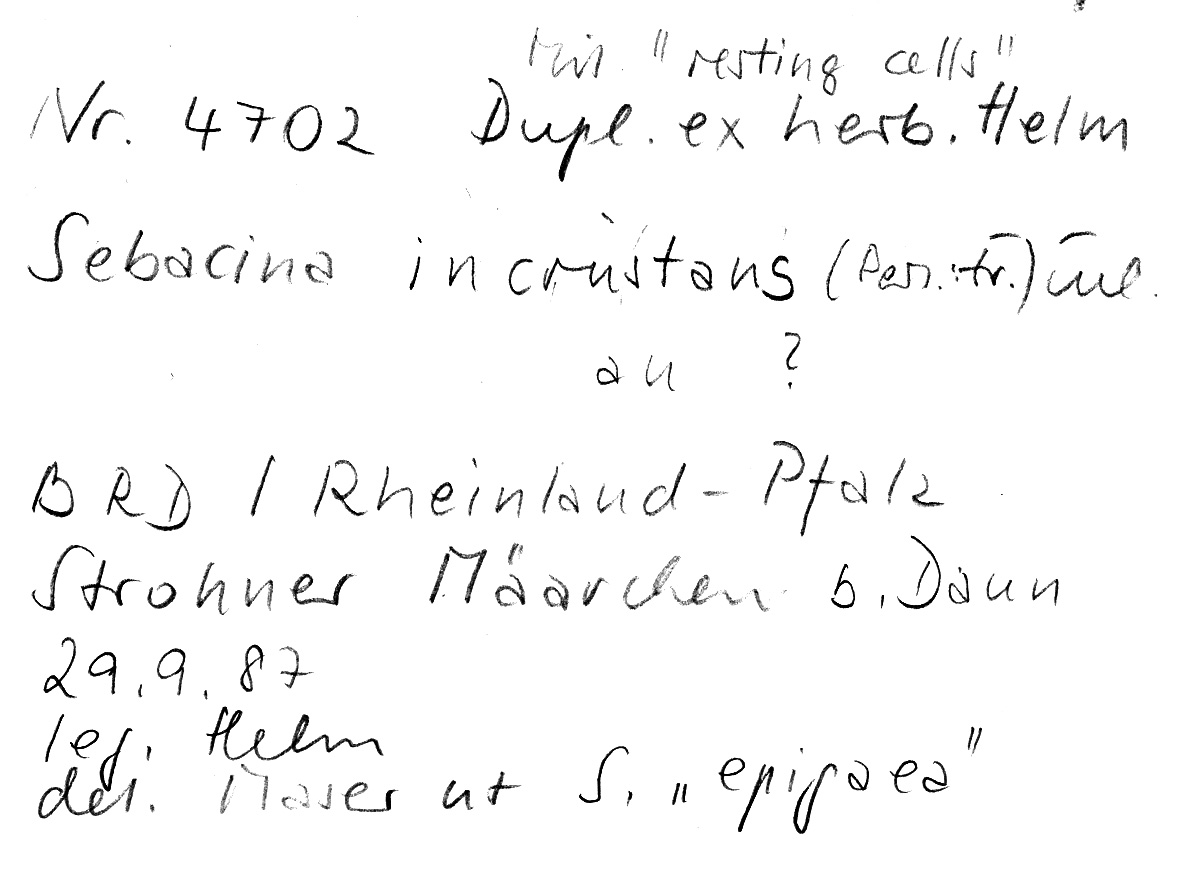 Mit "resting cells"
Nr. 4702 Dupl. ex herb. Helm
Sebacina incrustans (Pers.:Fr.) Tul.
an ?
BRD / Rheinland-Pfalz
Strohner Määrchen b. Daun
29.9.87
leg. Helm
det. Maser ut S. „epigaea"